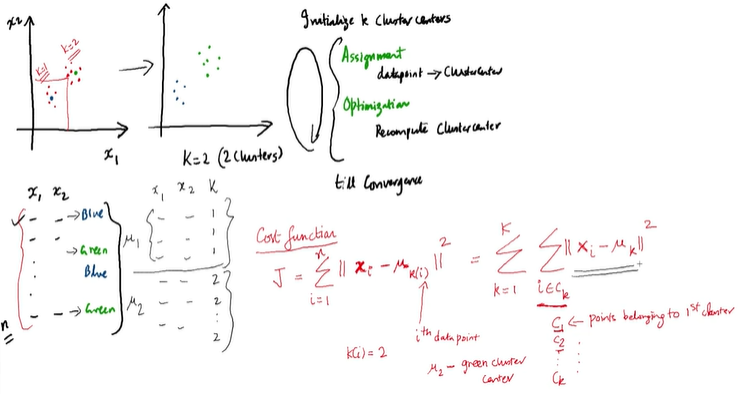 x₂
K=1
K=2
x₁
K=2 (2 Clusters)
Initialize k Cluster centers
Assignment
datapoint → Clustercenter
Optimization
Recompute Clustercenter
till Convergence
x₁ x₂
✓ – – → Blue
– – → Green
Blue
– – → Green
n
x₁ x₂ K
μ₁
– – 1
– – 1
– – 1
μ₂
– – 2
– – 2
– – 2
Cost function
J = ∑ᵢ₌₁ⁿ || xᵢ - μ_k(i) ||² = ∑ₖ₌₁ᴷ ∑_{i∈Cₖ} || xᵢ - μₖ ||²
iᵗʰ data point
K(i) = 2
μ₂ – green cluster
center
C₁ ← points belonging to 1ˢᵗ cluster
C₂
Cₖ